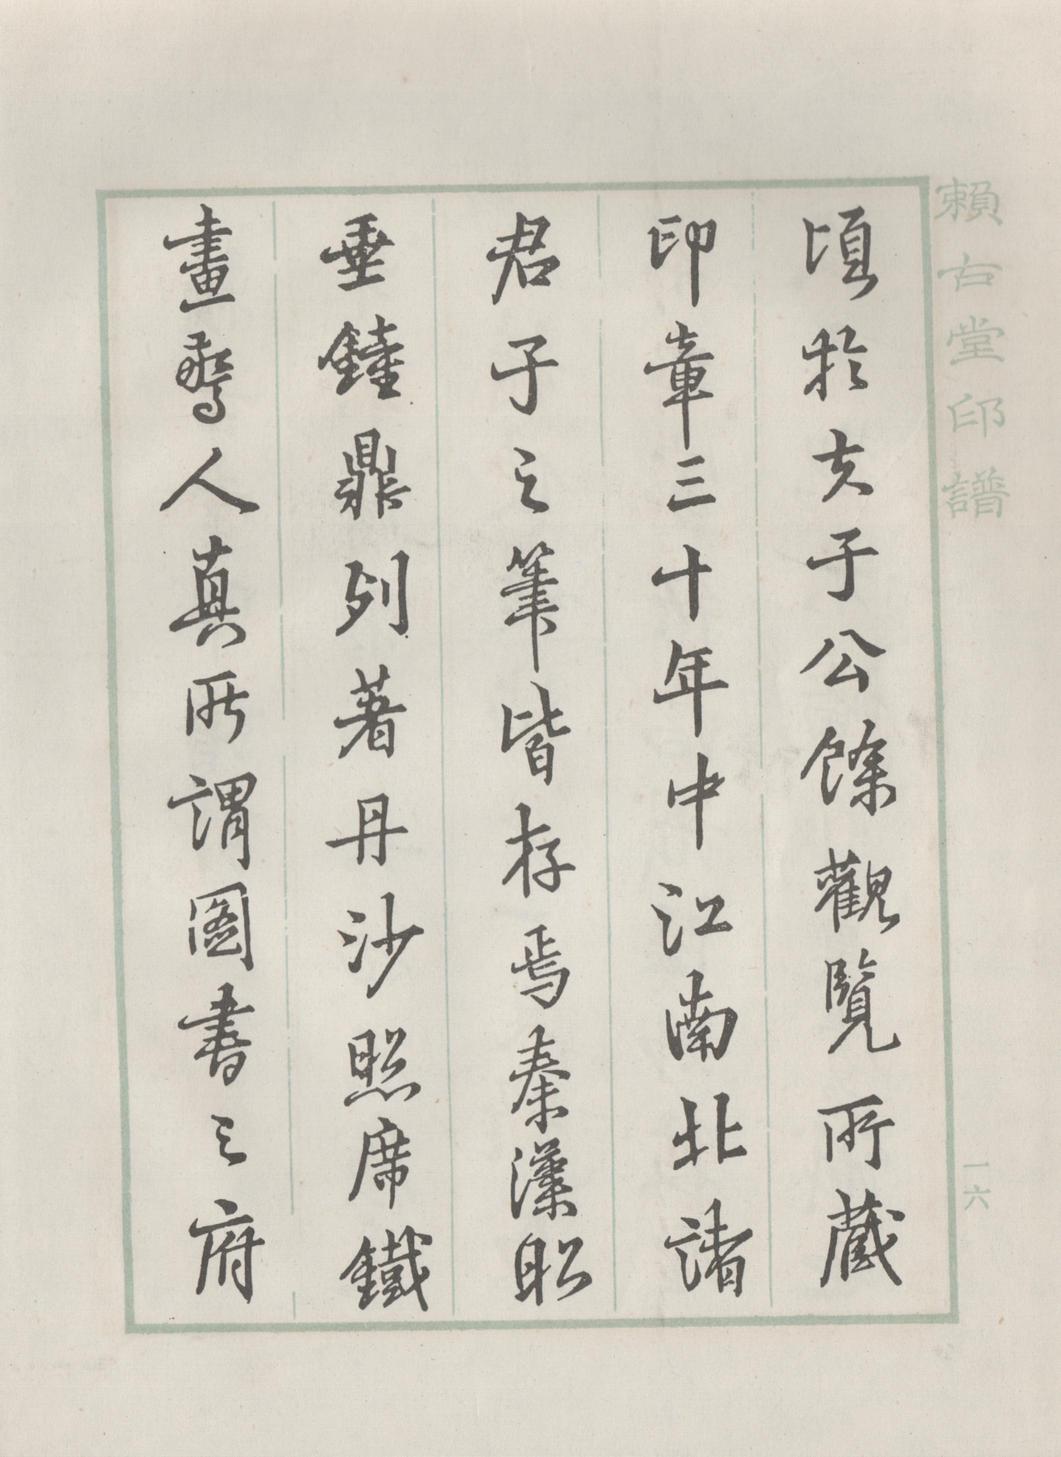 賴古堂印譜
一六
頃於夫子公餘觀覽所藏
印章三十年中江南北諸
君子之筆皆存焉秦漢昭
垂鐘鼎列著丹沙照席鐵
畫驚人真所謂圖書之府